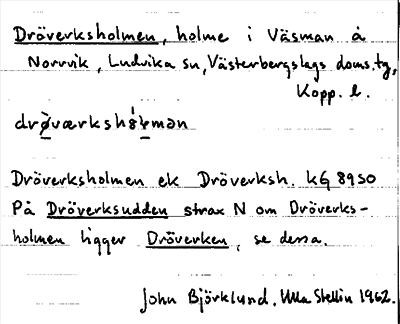 Dröverksholmen, holme i Väsman å
Norrvik, Ludvika sn, Västerbergslags doms.tg,
Kopp. l.
Dröverksholmen ek Dröverksh. KG 8950
På Dröverksudden strax N om Dröverks-
holmen ligger Dröverken, se dessa.
John Björklund. Ulla Stellin 1962.